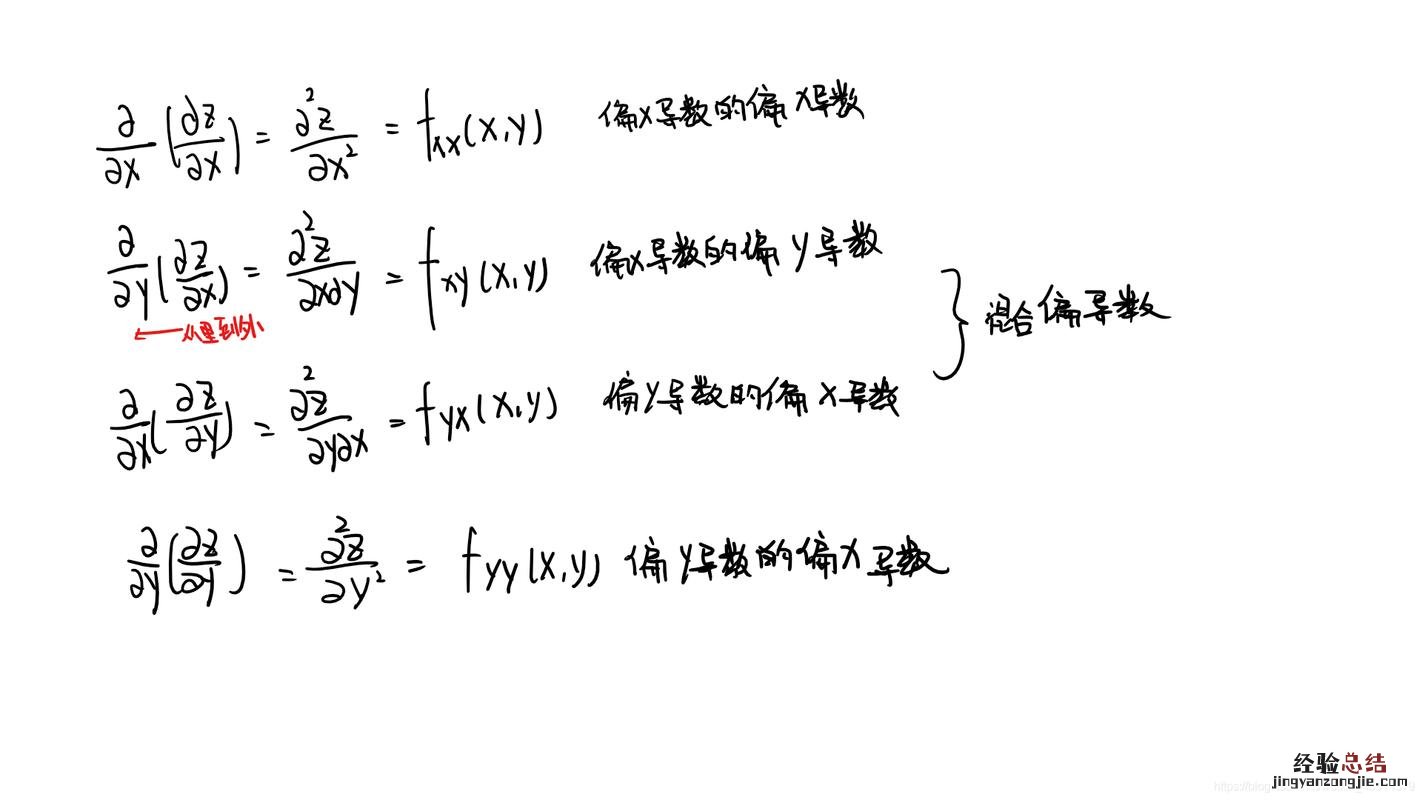 ∂/∂x (∂z/∂x) = ∂²z/∂x² = fxx(x,y) 偏x导数的偏x导数
∂/∂y (∂z/∂x) = ∂²z/∂x∂y = fxy(x,y) 偏x导数的偏y导数
← 从里到外
混合偏导数
∂/∂x (∂z/∂y) = ∂²z/∂y∂x = fyx(x,y) 偏y导数的偏x导数
∂/∂y (∂z/∂y) = ∂²z/∂y² = fyy(x,y) 偏y导数的偏x导数
经验总结
jingyanzongjie.com